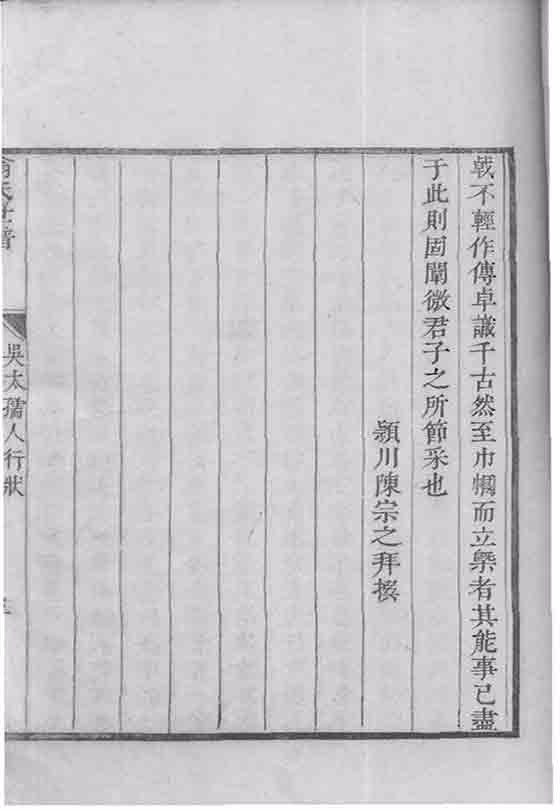 戟不輕作傳卓識千古然至巾幗而立槼者其能事已盡
于此則固闡微君子之所節采也
潁川陳宗之拜撰
氏世譜
吳太孺人行狀